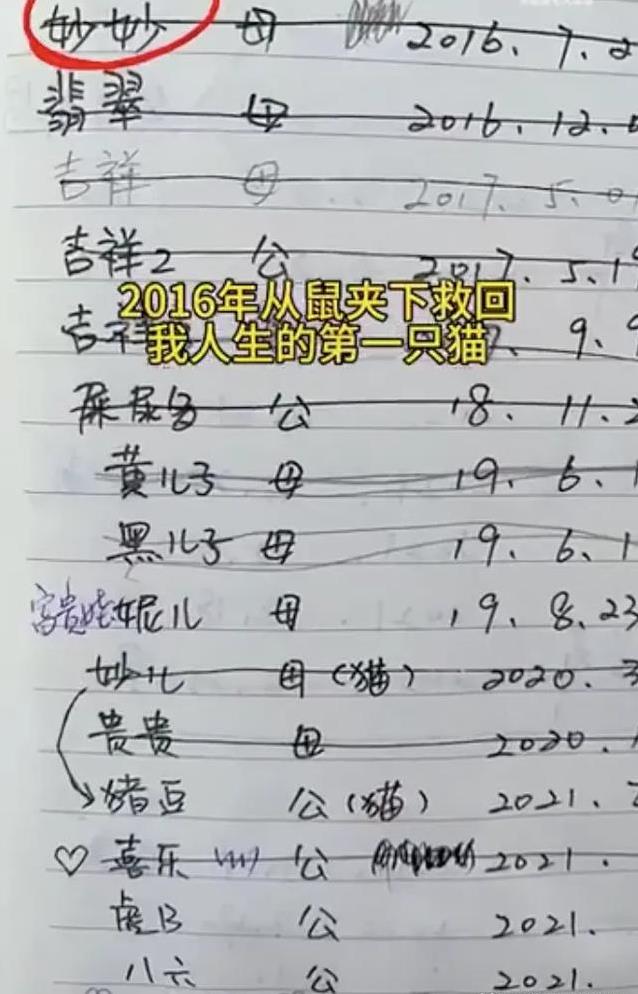 妙妙 母 2016.7.2
翡翠 母 2016.12.
吉祥 母 2017.5.0
吉祥2 公 2017.5.19
2016年从鼠夹下救回
吉祥 9.9
我人生的第一只猫
屎尿多 公 18.11.2
黄儿子 母 19.6.1
黑儿子 母 19.6.1
富贵娃妮儿 母 19.8.23
妙儿 母(猫) 2020.3
贵贵 母 2020.1
猪豆 公(猫) 2021.
♡喜乐 公 2021.
虎B 公 2021.
八六 公 2021.